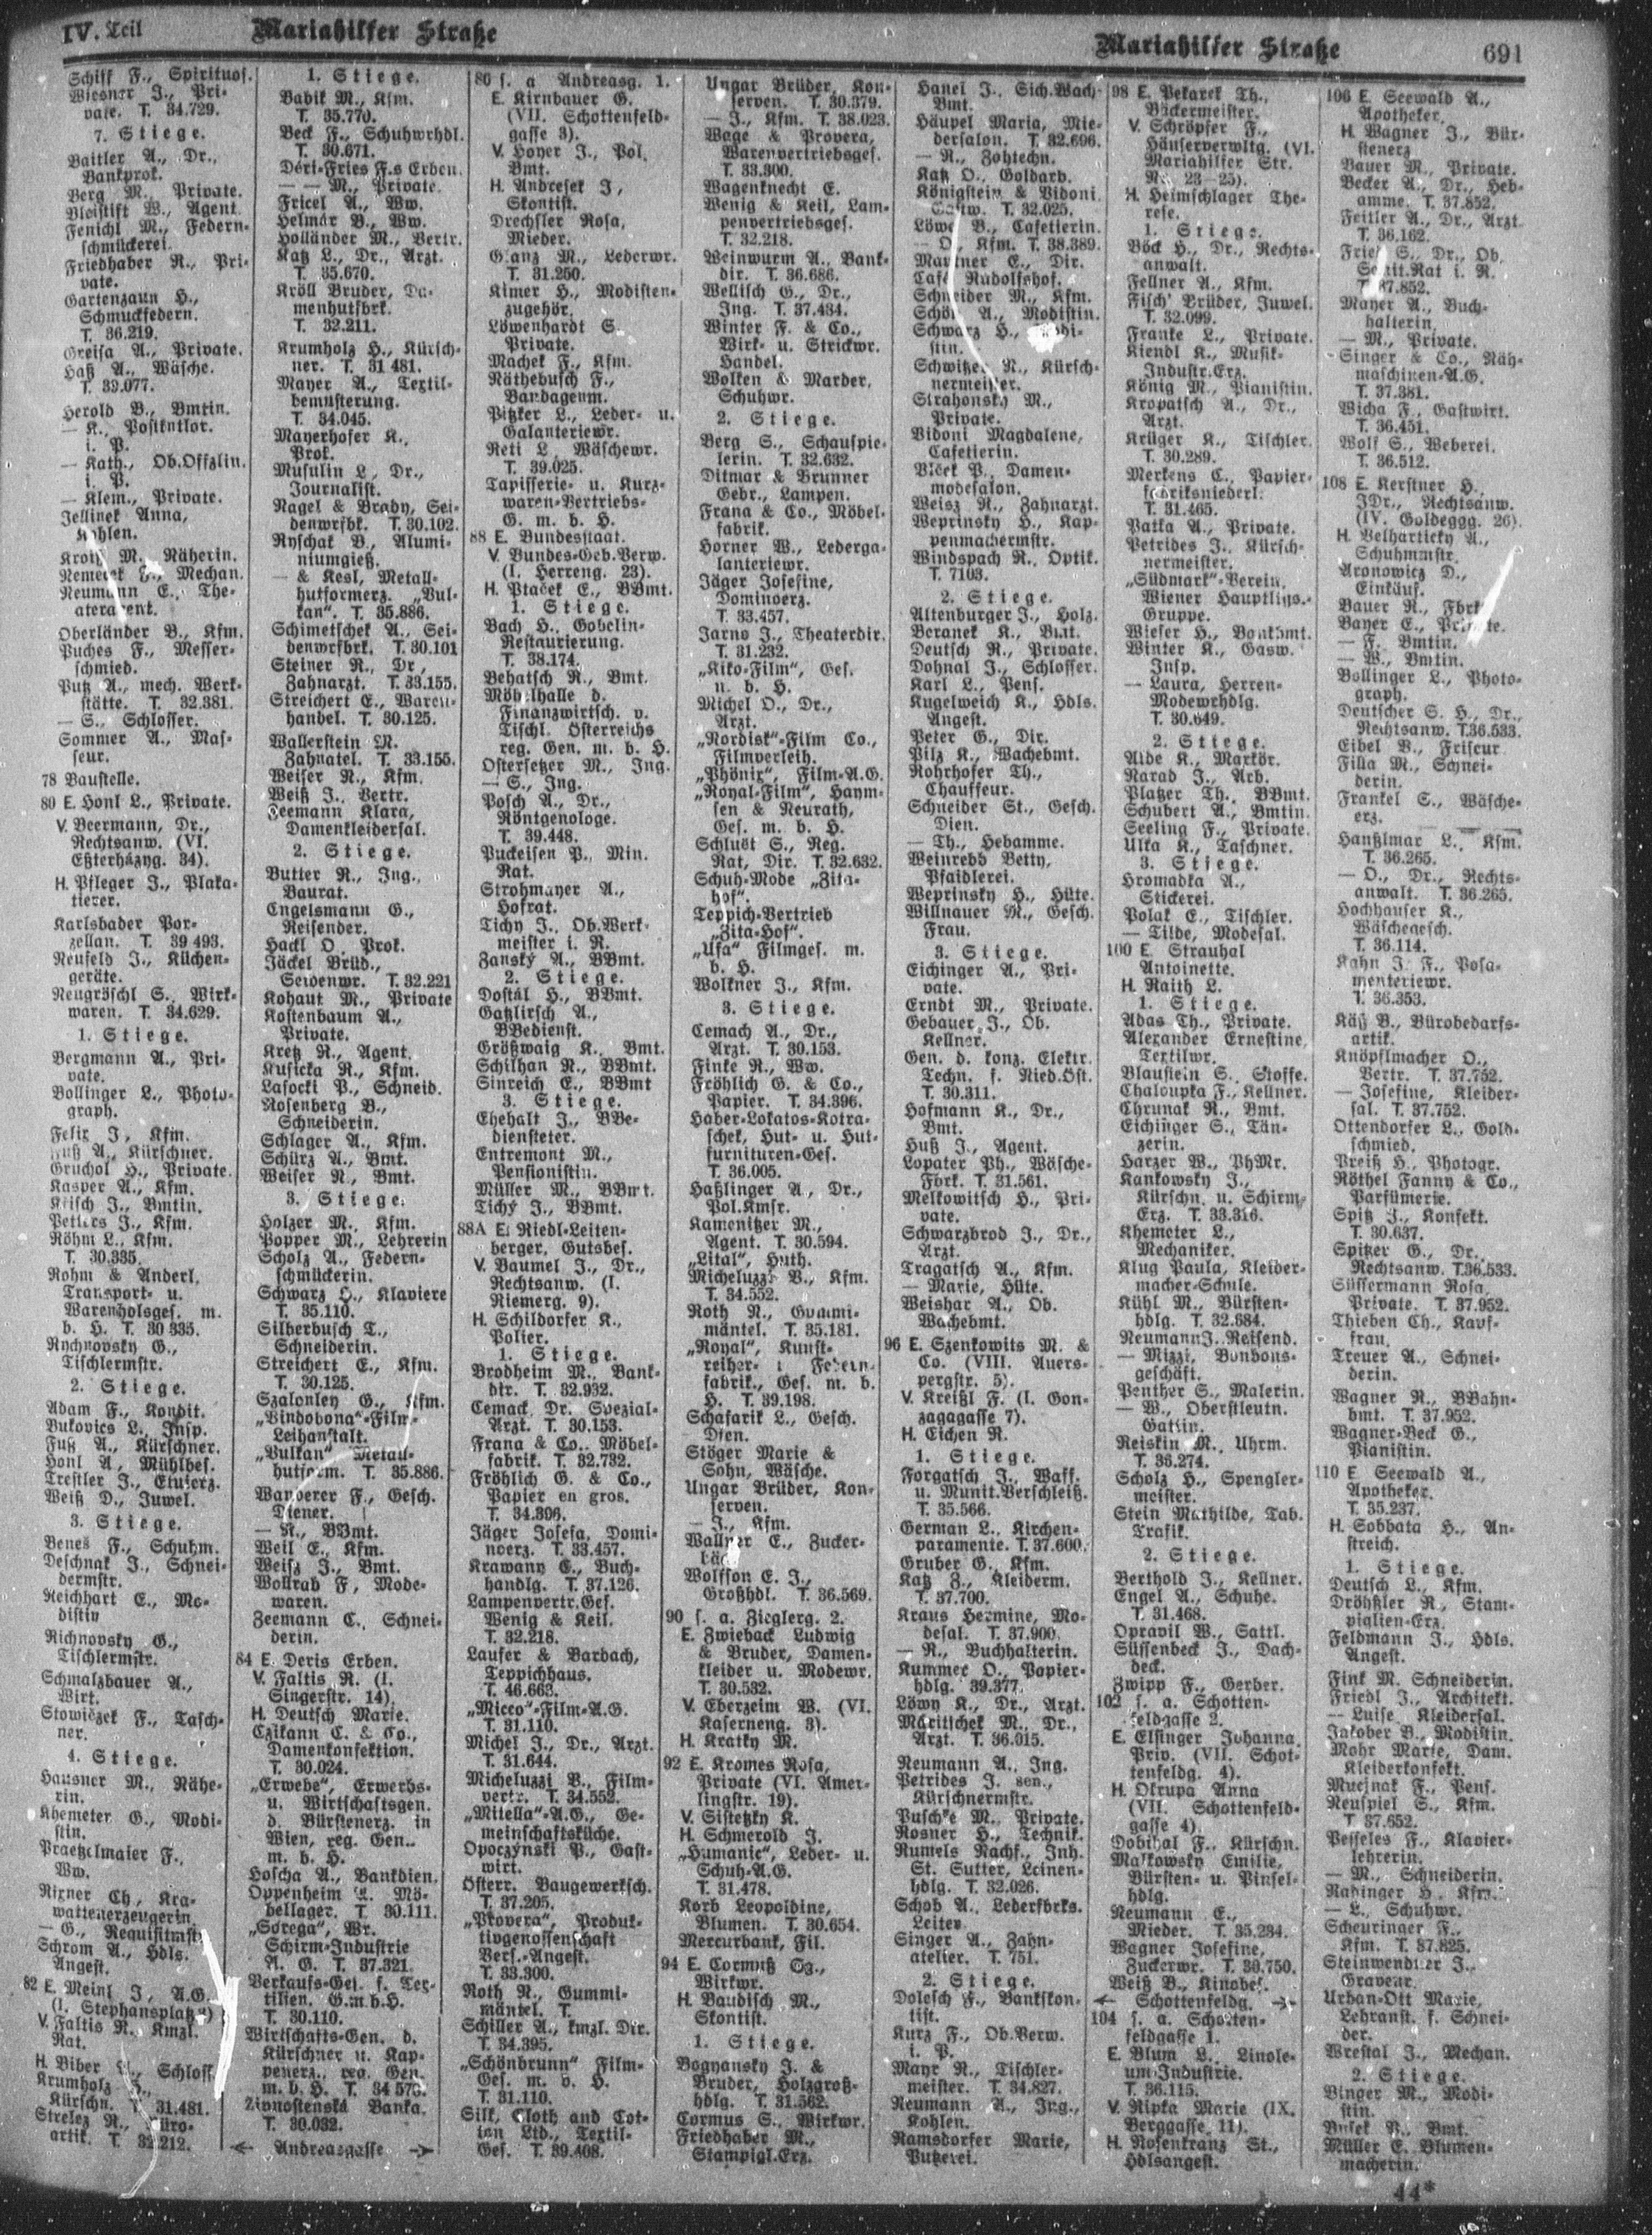 IV. Teil
Mariahilfer Straße
Mariahilfer Straße
691
Schilf F., Spirituos.
Wiesner J., Pri-
vate. T. 34.729.
7. Stiege.
Baitler A., Dr.,
Bankprok.
Berg M., Private.
Bleistift W., Agent.
Fenichl M., Federn-
schmückerei.
Friedhaber R., Pri-
vate.
Gartenzaun H.,
Schmuckfedern.
T. 36.219.
Greisa A., Private.
Haß A., Wäsche.
T. 39.077.
Herold B., Bmtin.
— K., Postkntlor.
i. P.
— Kath., Ob.Offzlin.
i. P.
— Klem., Private.
Jellinek Anna,
Kohlen.
M., Näherin.
Mechan.
Neumann E., The-
Oberländer B., Kfm.
Puches F., Messer-
schmied.
Putz A., mech. Werk-
stätte. T. 32.381.
— S., Schlosser.
Sommer A., Mas-
seur.
78 Baustelle.
80 E. Honl L., Private.
V. Beermann, Dr.,
Rechtsanw. (VI.
Eßterházyg. 34).
H. Pfleger J., Plaka-
tierer.
Karlsbader Por-
zellan. T. 39 493.
Neufeld J., Küchen-
geräte.
Neugröschl S., Wirk-
waren. T. 34.629.
1. Stiege.
Bergmann A., Pri-
vate.
Bollinger L., Photo-
graph.
Felix J., Kfm.
Fuß A., Kürschner.
Gruchol H., Private.
Kasper A., Kfm.
Krisch J., Bmtin.
Petters J., Kfm.
Röhm L., Kfm.
T. 30.335.
Rohm & Anderl,
Transport- u.
Warenholsges. m.
b. H. T. 30 335.
Rychnovsky G.,
Tischlermstr.
2. Stiege.
Adam F., Kondit.
Bukovics L., Insp.
Fuß A., Kürschner.
Honl A., Mühlbes.
Trestler J., Etuierz.
Weiß D., Juwel.
3. Stiege.
Benes F., Schuhm.
Deschnak J., Schnei-
dermstr.
Reichhart E., Mo-
distin
Richnovsky G.,
Tischlermstr.
Schmalzbauer A.,
Wirt.
Stowiczek F., Tasch-
ner.
4. Stiege.
Hausner M., Nähe-
rin.
Khemeter G., Modi-
stin.
Praetzelmaier F.,
Ww.
Rixner Ch., Kra-
wattenerzeugerin.
— G., Requisitmst.
Schrom A., Hdls.
Angest.
82 E. Meinl J., A.G.
(I. Stephansplatz
V. Faltis R., Kmzl.
Rat.
H. Biber
Krumholz H.,
Kürschn. T. 31.481.
Strelez R.,
artik. T. 32.212.
1. Stiege.
Babik M., Kfm.
T. 35.770.
Beck F., Schuhwrhdl.
T. 30.671.
Déri-Fries F.s Erben.
— — M., Private.
Fricel A., Ww.
Helmár B., Ww.
Holländer M., Vertr.
Katz L., Dr., Arzt.
T. 35.670.
Kröll Brüder, Da-
menhutfbrk.
T. 32.211.
Krumholz H., Kürsch-
ner. T. 31 481.
Mayer A., Textil-
bemusterung.
T. 34.045.
Mayerhofer K.,
Prok.
Musulin L., Dr.,
Journalist.
Nagel & Brady, Sei-
denwrfbk. T. 30.102.
Ryschak B., Alumi-
niumgieß.
— & Kesl, Metall-
hutformerz. „Vul-
kan“. T. 35.886.
Schimetschek A., Sei-
denwrfbrk. T. 30.101
Steiner R., Dr.,
Zahnarzt. T. 33.155.
Streichert E., Waren-
handel. T. 30.125.
Wallerstein M.
Zahnatel. T. 33.155.
Weiser R., Kfm.
Weiß J., Vertr.
Zeemann Klara,
Damenkleidersal.
2. Stiege.
Butter R., Ing.,
Baurat.
Engelsmann G.,
Reisender.
Hackl O., Prok.
Jäckel Brüd.,
Seidenwr. T. 32.221
Kohaut M., Private
Kostenbaum A.,
Private.
Kretz R., Agent.
Kusicka R., Kfm.
Lasocki P., Schneid.
Rosenberg B.,
Schneiderin.
Schlager A., Kfm.
Schürz A., Bmt.
Weiser R., Bmt.
3. Stiege.
Holzer M., Kfm.
Popper M., Lehrerin
Scholz A., Federn-
schmückerin.
Schwarz H., Klaviere
T. 35.110.
Silberbusch T.,
Schneiderin.
Streichert E., Kfm.
T. 30.125.
Szalonley G., Kfm.
„Vindobona“-Film-
Leihanstalt.
„Vulkan“ Metall-
hutform. T. 35.886.
Wanderer F., Gesch.
Diener.
— R., BBmt.
Weil E., Kfm.
Weisz J., Bmt.
Wollrab F., Mode-
waren.
Zeemann C., Schnei-
derin.
84 E. Deris Erben.
V. Faltis R. (I.
Singerstr. 14).
H. Deutsch Marie.
Czikann C. & Co.,
Damenkonfektion.
T. 30.024.
„Erwebe“, Erwerbs-
u. Wirtschaftsgen.
d. Bürstenerz. in
Wien, reg. Gen..
m. b. H.
Hoscha A., Bankdien.
Oppenheim A. Mö-
bellager. T. 30.111.
„Sorega“, Wr.
Schirm-Industrie
A. G. T. 37.321.
Verkaufs-Ges. f. Tex-
tilien. G.m.b.H.
T. 30.110.
Wirtschafts-Gen. d.
Kürschner u. Kap-
penerz., reg. Gen.
m. b. H. T. 34 576.
Zivnostenska Banka.
T. 30.032.
← Andreasgasse →
86 s. a Andreasg. 1.
E. Kirnbauer G.
(VII. Schottenfeld-
gasse 3).
V. Hoyer J., Pol.
Bmt.
H. Andresek J.,
Skontist.
Drechsler Rosa,
Mieder.
Glanz M., Lederwr.
T. 31.250.
Kimer H., Modisten-
zugehör.
Löwenhardt S.
Private.
Machek F., Kfm.
Röthebusch F.,
Bandageum.
Pitzker L., Leder- u.
Galanteriewr.
Reti L., Wäschewr.
T. 39.025.
Tapisserie- u. Kurz-
waren-Vertriebs-
G. m. b. H.
88 E. Bundesstaat.
V. Bundes-Geb.Verw.
(I. Herreng. 23).
H. Ptaček E., BBmt.
1. Stiege.
Bach H., Gobelin-
Restaurierung.
T. 38.174.
Behatsch R., Bmt.
Möbelhalle d.
Finanzwirtsch. v.
Tischl. Österreichs
reg. Gen. m. b. H.
Ostersetzer M., Ing.
— S., Ing.
Posch A., Dr.,
Röntgenologe.
T. 39.448.
Puckeisen P., Min.
Rat.
Strohmayer A.,
Hofrat.
Tichy J., Ob.Werk-
meister i. R.
Zansky A., BBmt.
2. Stiege.
Dostál H., BBmt.
Gatzlirsch A.,
BBedienst.
Größwaig K., Bmt.
Schilhan R., BBmt.
Sinreich E., BBmt
3. Stiege.
Ehehalt J., BBe-
diensteter.
Entremont M.,
Pensionistin.
Müller M., BBmt.
Tichy J., BBmt.
88A E. Riedl-Leiten-
berger, Gutsbes.
V. Baumel J., Dr.,
Rechtsanw. (I.
Riemerg. 9).
H. Schildorfer K.,
Polier.
1. Stiege.
Brodheim M., Bank-
dir. T. 32.932.
Cemack, Dr. Spezial-
Arzt. T. 30.153.
Frana & Co., Möbel-
fabrik. T. 32.732.
Fröhlich G. & Co.,
Papier en gros.
T. 34.396.
Jäger Josefa, Domi-
noerz. T. 33.457.
Krawany E., Buch-
handlg. T. 37.126.
Lampenvertr.Ges.
Wenig & Keil.
T. 32.218.
Laufer & Barbach,
Teppichhaus.
T. 46.663.
„Micco“-Film-A.G.
T. 31.110.
Michel J., Dr., Arzt.
T. 31.644.
Micheluzzi B., Film-
vertr. T. 34.552.
„Mitella“-A.G., Ge-
meinschaftsküche.
Opoczynski P., Gast-
wirt.
Österr. Baugewerksch.
T. 37.205.
„Provera“, Produk-
tivgenossenschaft
Vers.-Angest.
T. 33.300.
Roth N., Gummi-
mäntel. T.
Schiller A., kmzl. Dir.
T. 34.395.
„Schönbrunn“ Film-
Ges. m. b. H.
T. 31.110.
Silk, Cloth and Cot-
ton Ltd., Textil-
Ges. T. 39.408.
Ungar Brüder, Kon-
serven. T. 30.379.
— J., Kfm. T. 38.023.
Wage & Provera,
Warenvertriebsges.
T. 33.300.
Wagenknecht E.
Wenig & Keil, Lam-
penvertriebsges.
T. 32.218.
Weinwurm A., Bank-
dir. T. 36.686.
Wellisch G., Dr.,
Ing. T. 37.434.
Winter F. & Co.,
Wirk- u. Strickwr.
Handel.
Wolken & Marder,
Schuhwr.
2. Stiege.
Berg S., Schauspie-
lerin. T. 32.632.
Ditmar & Brunner
Gebr., Lampen.
Frana & Co., Möbel-
fabrik.
Horner W., Lederga-
lanteriewr.
Jäger Josefine,
Dominoerz.
T. 33.457.
Jarno J., Theaterdir.
T. 31.232.
„Kiko-Film“, Ges.
u. b. H.
Michel O., Dr.,
Arzt.
„Nordisk“-Film Co.,
Filmverleih.
„Phönix“, Film-A.G.
„Royal-Film“, Haym-
sen & Neurath,
Ges. m. b. H.
Schluöt S., Reg.
Rat, Dir. T. 32.632.
Schuh-Mode „Zita-
hof“.
Teppich-Vertrieb
„Zita-Hof“.
„Ufa“ Filmges. m.
b. H.
Wolkner J., Kfm.
3. Stiege.
Cemach A., Dr.,
Arzt. T. 30.153.
Finke R., Ww.
Fröhlich G. & Co.,
Papier. T. 34.396.
Haber-Lokatos-Kotra-
schek, Hut- u. Hut-
furnituren-Ges.
T. 36.005.
Haßlinger A., Dr.,
Pol.Kmsr.
Kamenitzer M.,
Agent. T. 30.594.
„Lital“, Huth.
Micheluzzi B., Kfm.
T. 34.552.
Roth N., Gummi-
mäntel. T. 35.181.
„Royal“, Kunst-
reiher- u Federn-
fabrik., Ges. m. b.
H. T. 39.198.
Schafarik L., Gesch.
Dien.
Stöger Marie &
Sohn, Wäsche.
Ungar Brüder, Kon-
serven.
— J., Kfm.
Wallner E., Zucker-
Wolfson E. J.,
Großhdl. T. 36.569.
90 s. a. Zieglerg. 2.
E. Zwieback Ludwig
& Bruder, Damen-
kleider u. Modewr.
T. 30.532.
V. Eberzeim W. (VI.
Kaserneng. 3).
H. Kratky M.
92 E. Kromes Rosa,
Private (VI. Amer-
lingstr. 19).
V. Sistetzky K.
H. Schmerold J.
„Humanic“, Leder- u.
Schuh-A.G.
T. 31.478.
Korb Leopoldine,
Blumen. T. 30.654.
Mercurbank, Fil.
94 E. Cormuß
Wirkwr.
H. Baudisch M.,
Skontist.
1. Stiege.
Bognansky J. &
Bruder, Holzgroß-
hdlg. T. 31.562.
Cormus S., Wirkwr.
Friedhaber M.,
Stampigl.Erz.
Hanel J., Sich.Wach-
Bmt.
Häupel Maria, Mie-
dersalon. T. 32.696.
— R., Zohtechn.
Katz O., Goldarb.
Königstein & Vidoni
T. 32.025.
Löwe B., Cafetierin.
— O., Kfm. T. 38.389.
E., Dir.
Café Rudolfshof.
Schneider M., Kfm.
Schön A., Modistin.
Schwarz H., Modi-
stin.
Schwitzer R., Kürsch-
nermeister.
Strahonsky M.,
Private.
Vidoni Magdalene,
Cafetierin.
Vlček P., Damen-
modesalon.
Weisz R., Zahnarzt.
Weprinsky H., Kap-
penmachermstr.
Windspach R., Optik.
T. 7103.
2. Stiege.
Altenburger J., Holz.
Beranek K., Bmt.
Deutsch R., Private.
Dohnal J., Schlosser.
Karl L., Pens.
Kugelweich K., Hdls.
Angest.
Peter G., Dir.
Pilz K., Wachebmt.
Rohrhofer Th.,
Chauffeur.
Schneider St., Gesch.
Dien.
— Th., Hebamme.
Weinrebb Betty,
Pfaidlerei.
Weprinsky H., Hüte.
Willnauer M., Gesch.
Frau.
3. Stiege.
Eichinger A., Pri-
vate.
Erndt M., Private.
Gebauer J., Ob.
Kellner.
Gen. d. konz. Elektr.
Techn. f. Nied.Öst.
T. 30.311.
Hofmann K., Dr.,
Bmt.
Huß J., Agent.
Lopater Ph., Wäsche-
Fbrk. T. 31.561.
Melkowitsch H., Pri-
vate.
Schwarzbrod J., Dr.,
Arzt.
Tragatsch A., Kfm.
— Marie, Hüte.
Weishar A., Ob.
Wachebmt.
96 E. Szenkowits M. &
Co. (VIII. Auers-
pergstr. 5).
V. Kreißl F. (I. Gon-
zagagasse 7).
H. Eichen R.
1. Stiege.
Forgatsch J., Waff.
u. Munit.Verschleiß.
T. 35.566.
German L., Kirchen-
paramente. T. 37.600.
Gruber G., Kfm.
Katz Z., Kleiderm.
T. 37.700.
Kraus Hermine, Mo-
desal. T. 37.900.
— R., Buchhalterin.
Kummer O., Papier-
hdlg. 39.377.
Löwy K., Dr., Arzt.
Maritschek M., Dr.,
Arzt. T. 36.015.
Neumann A., Ing.
Petrides J. sen.,
Kürschnermstr.
Puschke M., Private.
Rosner H., Technik.
Rumels Nachf., Inh.
St. Sutter, Leinen-
hdlg. T. 32.026.
Schob A., Lederfbrks.
Leiter.
Singer A., Zahn-
atelier. T. 751.
2. Stiege.
Dolesch F., Bankskon-
tist.
Kurz F., Ob.Verw.
i. P.
Mayr R., Tischler-
meister. T. 34.827.
Neumann A., Ing.,
Kohlen.
Ramsdorfer Marie,
Putzerei.
98 E. Pekarek Th.,
Bäckermeister.
V. Schröpfer F.,
Häuserverwltg. (VI.
Mariahilfer Str.
Nr. 23—25).
H. Heimschlager The-
rese.
1. Stiege.
Böck H., Dr., Rechts-
anwalt.
Fellner A., Kfm.
Fisch' Brüder, Juwel.
T. 32.099.
Franke L., Private.
Kiendl K., Musik-
Industr.Erz.
König M., Pianistin.
Kropatsch A., Dr.,
Arzt.
Krüger K., Tischler.
T. 30.289.
Mertens C., Papier-
fabriksniederl.
T. 31.465.
Patka A., Private.
Petrides J., Kürsch-
nermeister.
„Südmark“-Verein,
Wiener Hauptltgs.-
Gruppe.
Wieser H., Bankbmt.
Winter K., Gasw.
Insp.
— Laura, Herren-
Modewrhdlg.
T. 30.649.
2. Stiege.
Alde K., Markör.
Narad J., Arb.
Platzer Th., BBmt.
Schubert A., Bmtin.
Seeling F., Private.
Ulka K., Taschner.
3. Stiege.
Hromadka A.,
Stickerei.
Polak E., Tischler.
— Tilde, Modesal.
100 E. Strauhal
Antoinette.
H. Raith L.
1. Stiege.
Adas Th., Private.
Alexander Ernestine,
Textilwr.
Blaustein S., Stoffe.
Chaloupka F., Kellner.
Chrunak R., Bmt.
Eichinger S., Tän-
zerin.
Harzer W., PhMr.
Kankowsky J.,
Kürschn. u. Schirm-
Erz. T. 33.316.
Khemeter L.,
Mechaniker.
Klug Paula, Kleider-
macher-Schule.
Kühl M., Bürsten-
hdlg. T. 32.684.
Neumann J., Reisend.
— Mizzi, Bonbons-
geschäft.
Penther S., Malerin.
— W., Oberstleutn.
Gattin.
Reiskin M., Uhrm.
T. 36.274.
Scholz H., Spengler-
meister.
Stein Mathilde, Tab.
Trafik.
2. Stiege.
Berthold J., Kellner.
Engel A., Schuhe.
T. 31.468.
Opravil W., Sattl.
Süssenbeck J., Dach-
deck.
Zwipp F., Gerber.
102 s. a. Schotten-
feldgasse 2.
E. Elsinger Johanna,
Priv. (VII. Schot-
tenfeldg. 4).
H. Okrupa Anna
(VII. Schottenfeld-
gasse 4).
Dobihal F., Kürschn.
Malkowsky Emilie,
Bürsten- u. Pinsel-
hdlg.
Neumann E.,
Mieder. T. 35.234.
Wagner Josefine,
Zuckerwr. T. 30.750.
Weiß B., Kinobes.
← Schottenfeldg. →
104 s. a. Schotten-
feldgasse 1.
E. Blum L., Linole-
um-Industrie.
T. 36.115.
V. Ripka Marie (IX.
Berggasse 11).
H. Rosenkranz St.,
Hdlsangest.
106 E. Seewald A.,
Apotheker.
H. Wagner J., Bür-
stenerz
Bauer M., Private.
Becker A., Dr., Heb-
amme. T. 37.852.
Feitler A., Dr., Arzt.
T. 36.162.
Fries S., Dr., Ob.
Sanit.Rat i. R.
T. 37.852.
Mayer A., Buch-
halterin.
— M., Private.
Singer & Co., Näh-
maschinen-A.G.
T. 37.381.
Wicha F., Gastwirt.
T. 36.451.
Wolf S., Weberei.
T. 36.512.
108 E. Kerstner H.,
JDr., Rechtsanw.
(IV. Goldeggg. 26).
H. Velharticky A.,
Schuhmmstr.
Aronowicz D.,
Einkäuf.
Bauer R., Fbrk.
Bayer E., Private.
— F., Bmtin.
— W., Bmtin.
Bollinger L., Photo-
graph.
Deutscher S. H., Dr.,
Rechtsanw. T. 36.533.
Eibel B., Friseur.
Filla M., Schnei-
derin.
Frankel S., Wäsche-
erz.
Hanßlmar L., Kfm.
T. 36.265.
— O., Dr., Rechts-
anwalt. T. 36.265.
Hochhauser K.,
Wäschegesch.
T. 36.114.
Kahn J. F., Posa-
menteriewr.
T. 36.353.
Käß B., Bürobedarfs-
artik.
Knöpflmacher O.,
Vertr. T. 37.752.
— Josefine, Kleider-
sal. T. 37.752.
Ottendorfer L., Gold-
schmied.
Preiß H., Photogr.
Röthel Fanny & Co.,
Parfümerie.
Spitz J., Konfekt.
T. 30.637.
Spitzer G., Dr.,
Rechtsanw. T.36.533.
Süssermann Rosa,
Private. T. 37.952.
Thieben Ch., Kauf-
frau.
Treuer A., Schnei-
derin.
Wagner R., BBahn-
bmt. T. 37.952.
Wagner-Beck G.,
Pianistin.
110 E. Seewald A.,
Apotheker.
T. 35.237.
H. Sobbata H., An-
streich.
1. Stiege.
Deutsch L., Kfm.
Dröhßler R., Stam-
piglien-Erz.
Feldmann J., Hdls.
Angest.
Fink M. Schneiderin.
Friedl J., Architekt.
— Luise Kleidersal.
Jakober B., Modistin.
Mohr Marie, Dam.
Kleiderkonfekt.
Muejnak F., Pens.
Neuspiel S., Kfm.
T. 37.652.
Pesseles F., Klavier-
lehrerin.
— M., Schneiderin.
Radinger H., Kfm.
— L., Schuhwr.
Scheuringer F.,
Kfm. T. 37.825.
Steinwendner J.,
Graveur.
Urban-Ott Marie,
Lehranst. f. Schnei-
der.
Wrestal J., Mechan.
2. Stiege.
Binger M., Modi-
stin.
Busek P., Bmt.
Müller E. Blumen-
macherin.
44*